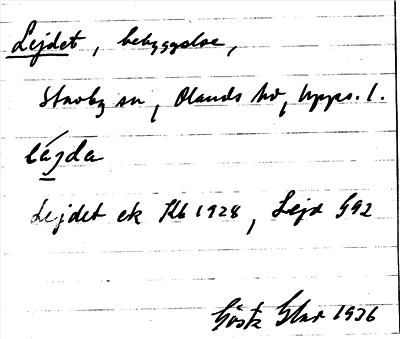 Lejdet, bebyggelse,
Stavby sn, Olands hd, Upps. l.
lä́jda
Lejdet ek Kb 1928, Lejd G92
Gösta 1936